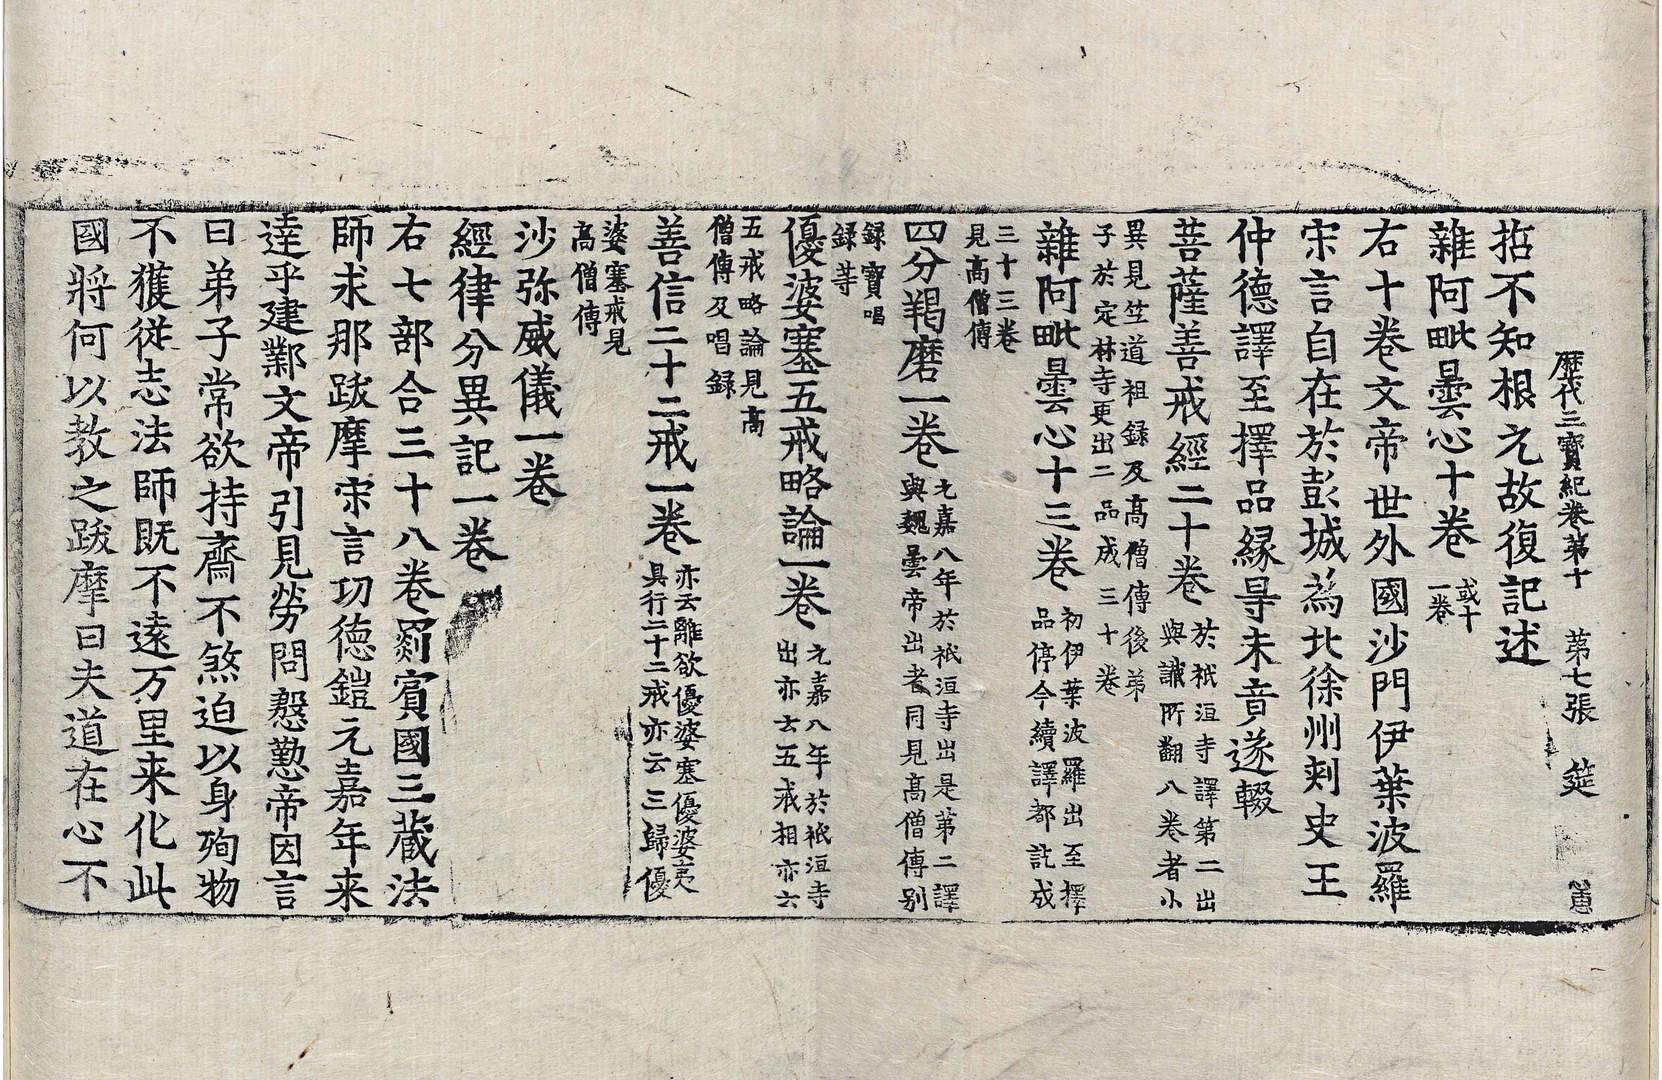 歷代三寶紀卷第十　第七張　筵
拈不知根允故復記述
雜阿毗曇心十卷或十
一卷
右十卷文帝世外國沙門伊葉波羅
宋言自在於彭城為北徐州刺史王
仲德譯至擇品緣㝵未音遂輟
菩薩善戒經二十卷於祇洹寺譯第二出
與讖所翻八卷者小
異見竺道祖録及髙僧傳後弟
子於定林寺更出二品成三十卷
雜阿毗曇心十三卷初伊葉波羅出至擇
品停今續譯都訖成
三十三卷
見髙僧傳
四分羯磨一卷元嘉八年於祇洹寺出是第二譯
與魏曇帝出者同見髙僧傳别
録寶唱
録等
優婆塞五戒略論一卷元嘉八年於祇洹寺
出亦云五戒相亦六
五戒略論見髙
僧傳及唱録
善信二十二戒一卷亦云離欲優婆塞優婆夷
具行二十二戒亦云三歸優
婆塞戒見
髙僧傳
沙弥威儀一卷
經律分異記一卷
右七部合三十八卷罽賓國三藏法
師求那跋摩宋言功德鎧元嘉年来
達乎建鄴文帝引見勞問慇懃帝因言
曰弟子常欲持齋不煞迫以身殉物
不獲從志法師既不遠万里来化此
國將何以教之跋摩曰夫道在心不